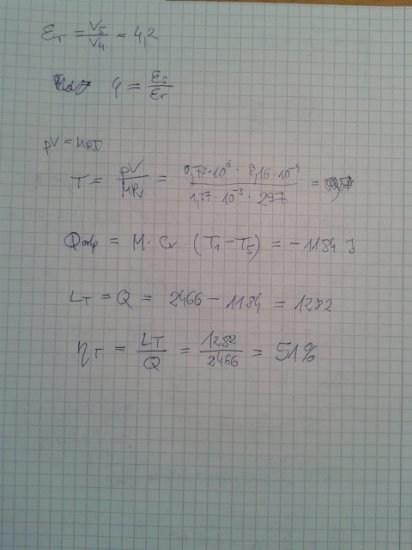 εr = V5/V4 = 4,2
φ = εs/εr
pV = MRT
T = pV/MR = 0,73·10⁶ · 8,16·10⁻⁴ / 1,17·10⁻² · 297 =
Qodp = M · Cv · (T1 − T5) = −1184 J
LT = Q = 2466 − 1184 = 1282
ηT = LT/Q = 1282/2466 = 51%